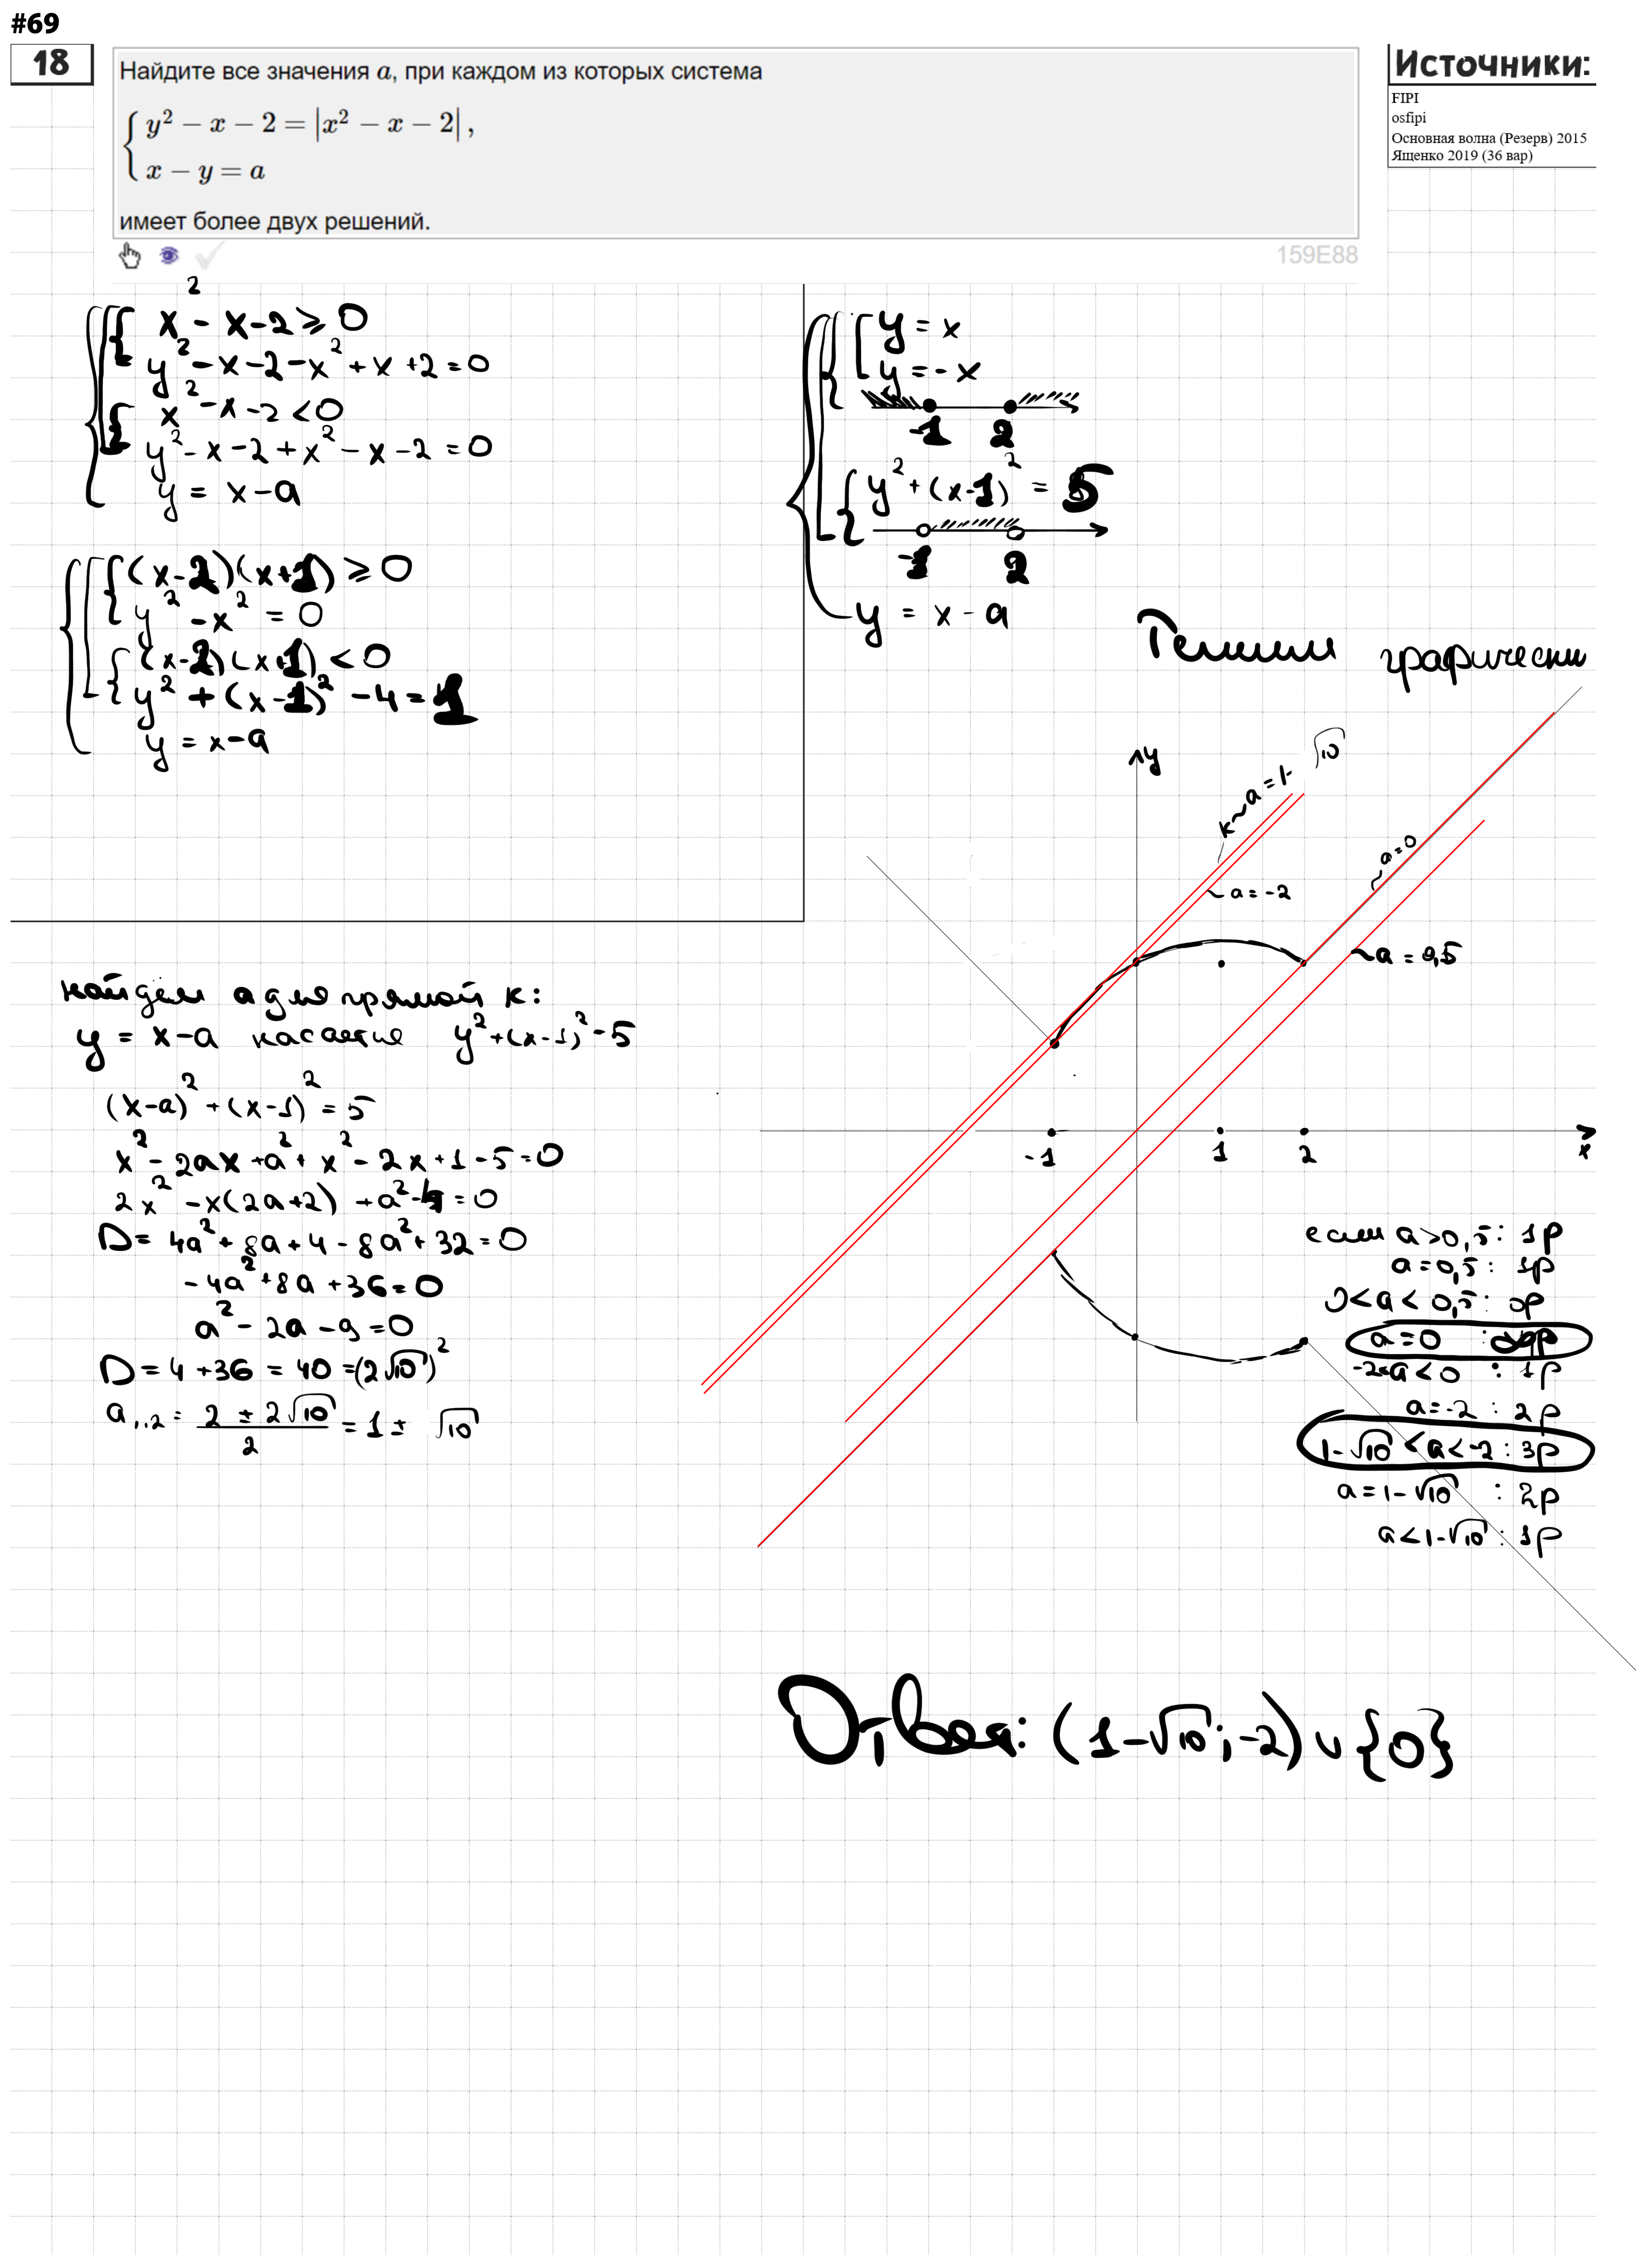 #69
18
Найдите все значения a, при каждом из которых система
{ y² − x − 2 = |x² − x − 2|,
{ x − y = a
имеет более двух решений.
159E88
Источники:
FIPI
osfipi
Основная волна (Резерв) 2015
Ященко 2019 (36 вар)
x² - x - 2 ≥ 0
y² - x - 2 - x² + x + 2 = 0
x² - x - 2 < 0
y² - x - 2 + x² - x - 2 = 0
y = x - a
(x-2)(x+1) ≥ 0
y² - x² = 0
(x-2)(x+1) < 0
y² + (x-1)² - 4 = 1
y = x - a
y = x
y = - x
-1 2
y² + (x-1)² = 5
-1 2
y = x - a
Решим графически
y
к a = 1 - √10
a = -2
a = 0
a = 0,5
-1 1 2 x
найдем a для прямой к:
y = x - a касается y² + (x-1)² = 5
(x-a)² + (x-1)² = 5
x² - 2ax + a² + x² - 2x + 1 - 5 = 0
2x² - x(2a+2) + a² - 4 = 0
D = 4a² + 8a + 4 - 8a² + 32 = 0
-4a² + 8a + 36 = 0
a² - 2a - 9 = 0
D = 4 + 36 = 40 = (2√10)²
a₁,₂ = (2 ± 2√10)/2 = 1 ± √10
если a > 0,5 : 1р
a = 0,5 : 1р
0 < a < 0,5 :
a = 0 :
-2 < a < 0 : 1р
a = -2 : 2р
1-√10 < a < -2 : 3р
a = 1-√10 : 2р
a < 1-√10 : 1р
Ответ: (1-√10; -2) ∪ {0}